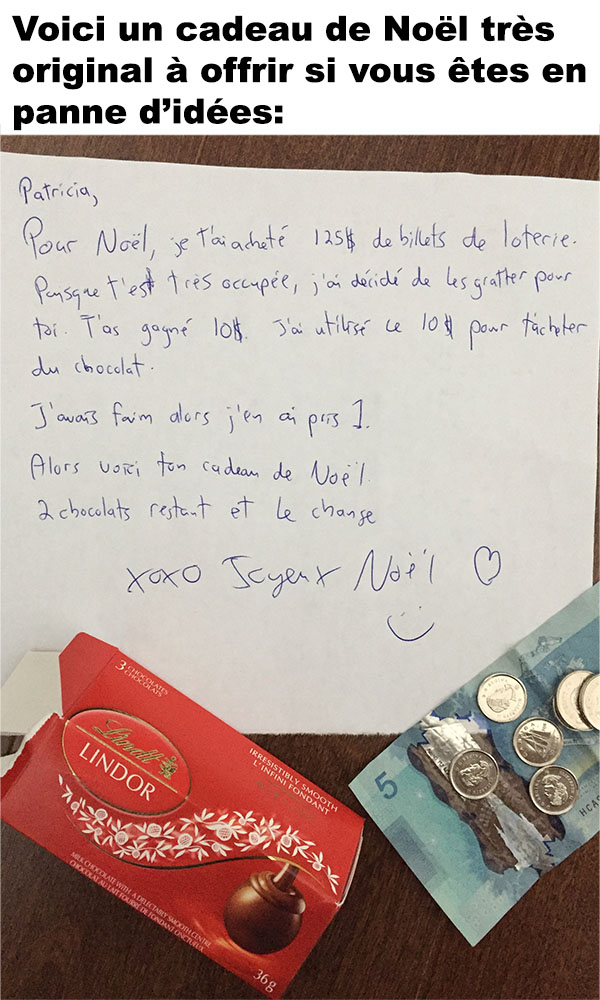 Voici un cadeau de Noël très
original à offrir si vous êtes en
panne d’idées:
Patricia,
Pour Noël, je t'ai acheté 125$ de billets de loterie.
Puisque t'est très occupée, j'ai décidé de les gratter pour
toi. T'as gagné 10$. J'ai utilisé ce 10$ pour t'acheter
du chocolat.
J'avais faim alors j'en ai pris 1.
Alors voici ton cadeau de Noël.
2 chocolats restant et le change
xoxo Joyeux Noël
3 CHOCOLATES
CHOCOLATS
Lindt
LINDOR
IRRESISTIBLY SMOOTH
L'INFINI FONDANT
MILK CHOCOLATE WITH A DELECTABLY SMOOTH CENTRE
CHOCOLAT AU LAIT FOURRÉ DE FONDANT ONCTUEUX
36 g
5